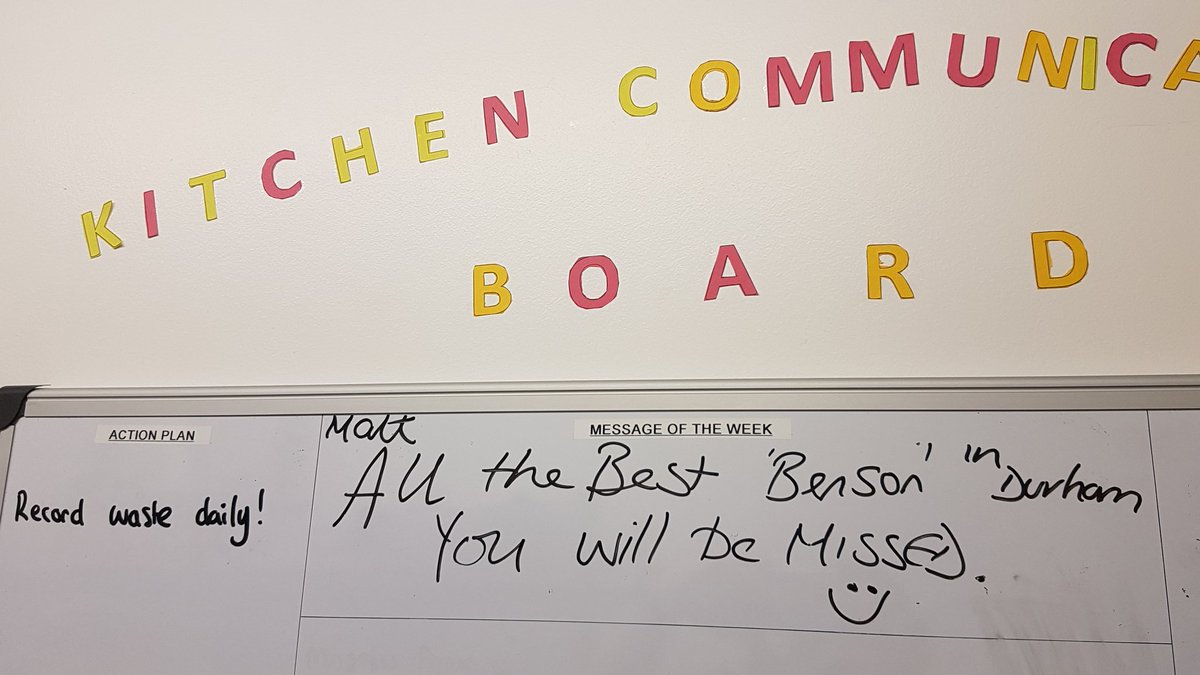 KITCHEN COMMUNICA
BOARD
ACTION PLAN
Record waste daily!
MESSAGE OF THE WEEK
Matt
All the Best 'Benson' in Durham
You will be Missed.